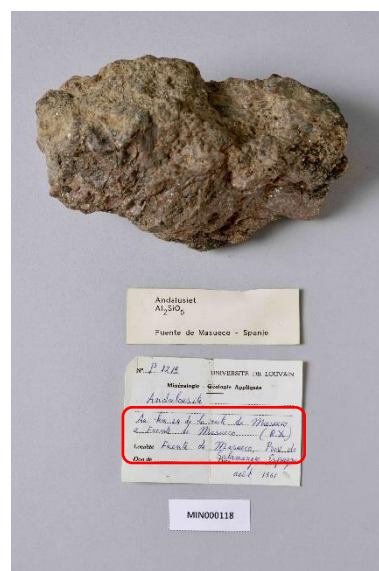 Andalusiet
Al2SiO5
Puente de Masueco - Spanje
N° P 1218 UNIVERSITE DE LOUVAIN
Minéralogie - Géologie Appliquée
Andalousite
Au Km 24 de la route de Masueco
a Fuente de Masueco
Localité Fuente de Masueco, Prov. de
Don de Salamanque Espagne
août 1961
MIN000118